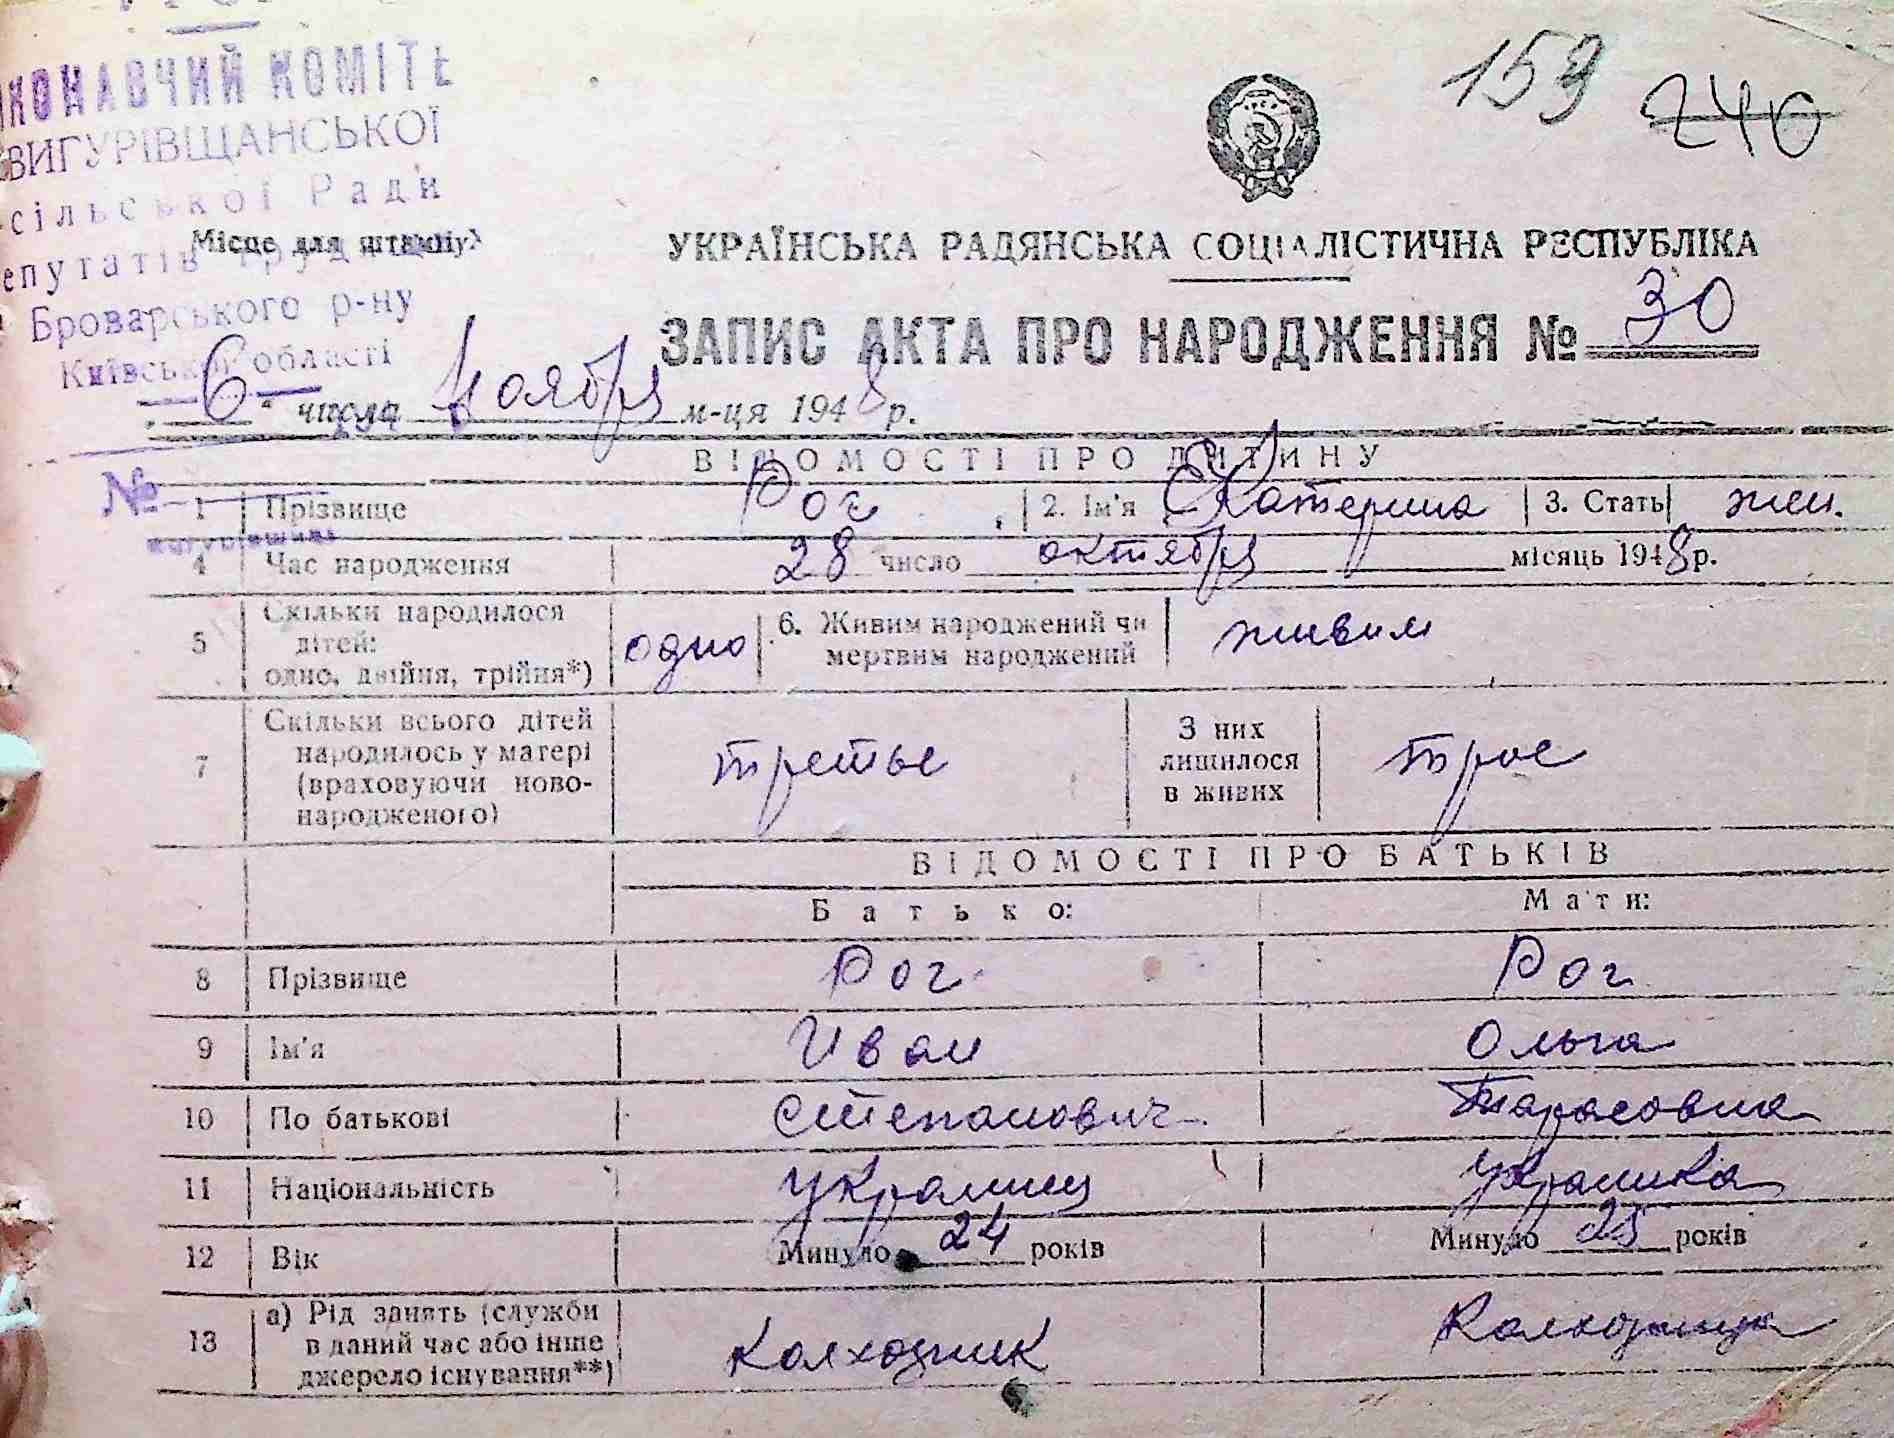 159 240
ИКОНАВЧИЙ КОМІТЕ
ВИГУРІВЩАНСЬКОЇ
сільської Ради
епутатів
Броварського р-ну
Київської області
Місце для штампу
УКРАЇНСЬКА РАДЯНСЬКА СОЦІАЛІСТИЧНА РЕСПУБЛІКА
ЗАПИС АКТА ПРО НАРОДЖЕННЯ № 30
6 числа Ноября м-ця 1948 р.
№
ВІДОМОСТІ ПРО ДИТИНУ
1 Прізвище Рог 2. Ім'я Екатерина 3. Стать жен.
4 Час народження 28 число октября місяць 1948 р.
5 Скільки народилося дітей: одно, двійня, трійня*) одно 6. Живим народжений чи мертвим народжений живим
7 Скільки всього дітей народилось у матері (враховуючи ново-народженого) третье З них лишилося в живих трое
ВІДОМОСТІ ПРО БАТЬКІВ
Батько: Мати:
8 Прізвище Рог Рог
9 Ім'я Иван Ольга
10 По батькові Степанович Тарасовна
11 Національність Украинец Украинка
12 Вік Минуло 24 років Минуло 25 років
13 а) Рід занять (служби в даний час або інше джерело існування**) Колхозник Колхозница